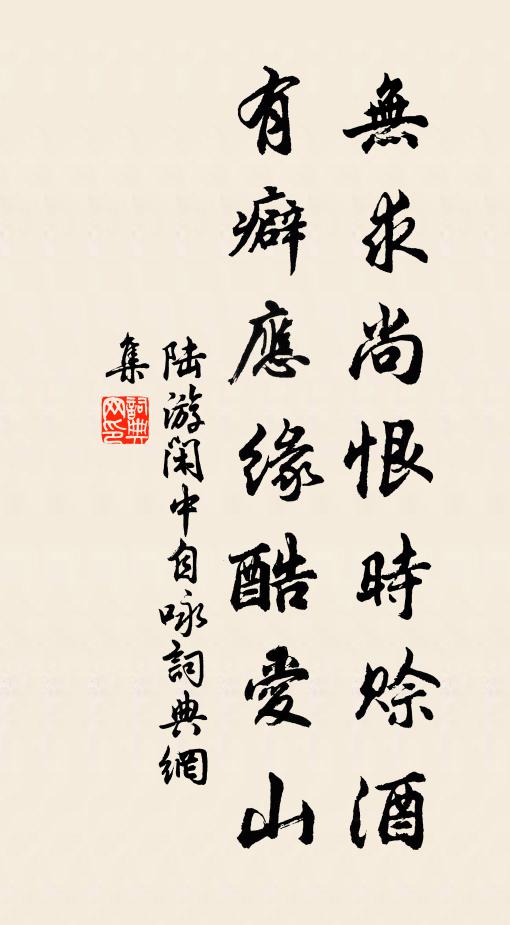 無求尚恨時賒酒
有癖應緣酷愛山
陆游閑中自咏詞典網
集
詞典
网印